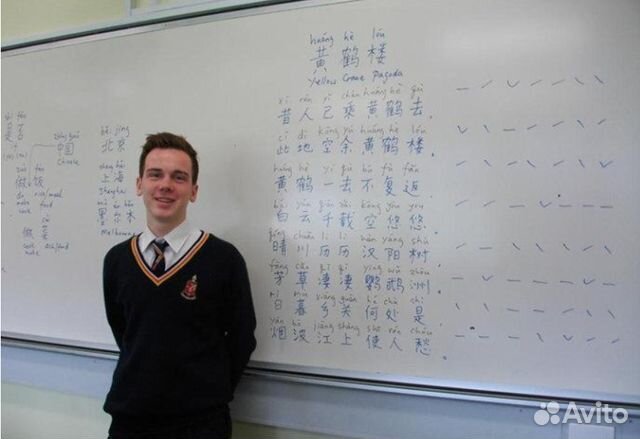 huáng hè lóu
黄鹤楼
Yellow Crane Pagoda
xī rén yǐ chéng huáng hè qù
昔人已乘黄鹤去,
cǐ dì kōng yú huáng hè lóu
此地空余黄鹤楼。
huáng hè yī qù bù fù fǎn
黄鹤一去不复返
bái yún qiān zǎi kōng yōu yōu
白云千载空悠悠。
qíng chuān lì lì hàn yáng shù
晴川历历汉阳树,
fāng cǎo qī qī yīng wǔ zhōu
芳草凄凄鹦鹉洲。
rì mù xiāng guān hé chù shì
日暮乡关何处是,
yān bō jiāng shàng shǐ rén chóu
烟波江上使人愁。
shì fǒu
是否
zhōng guó
中国
Chinese
zuò fàn
做饭
做菜
běi jīng
北京
shàng hǎi
上海
Shanghai
mò ěr běn
墨尔本
Melbourne
Avito